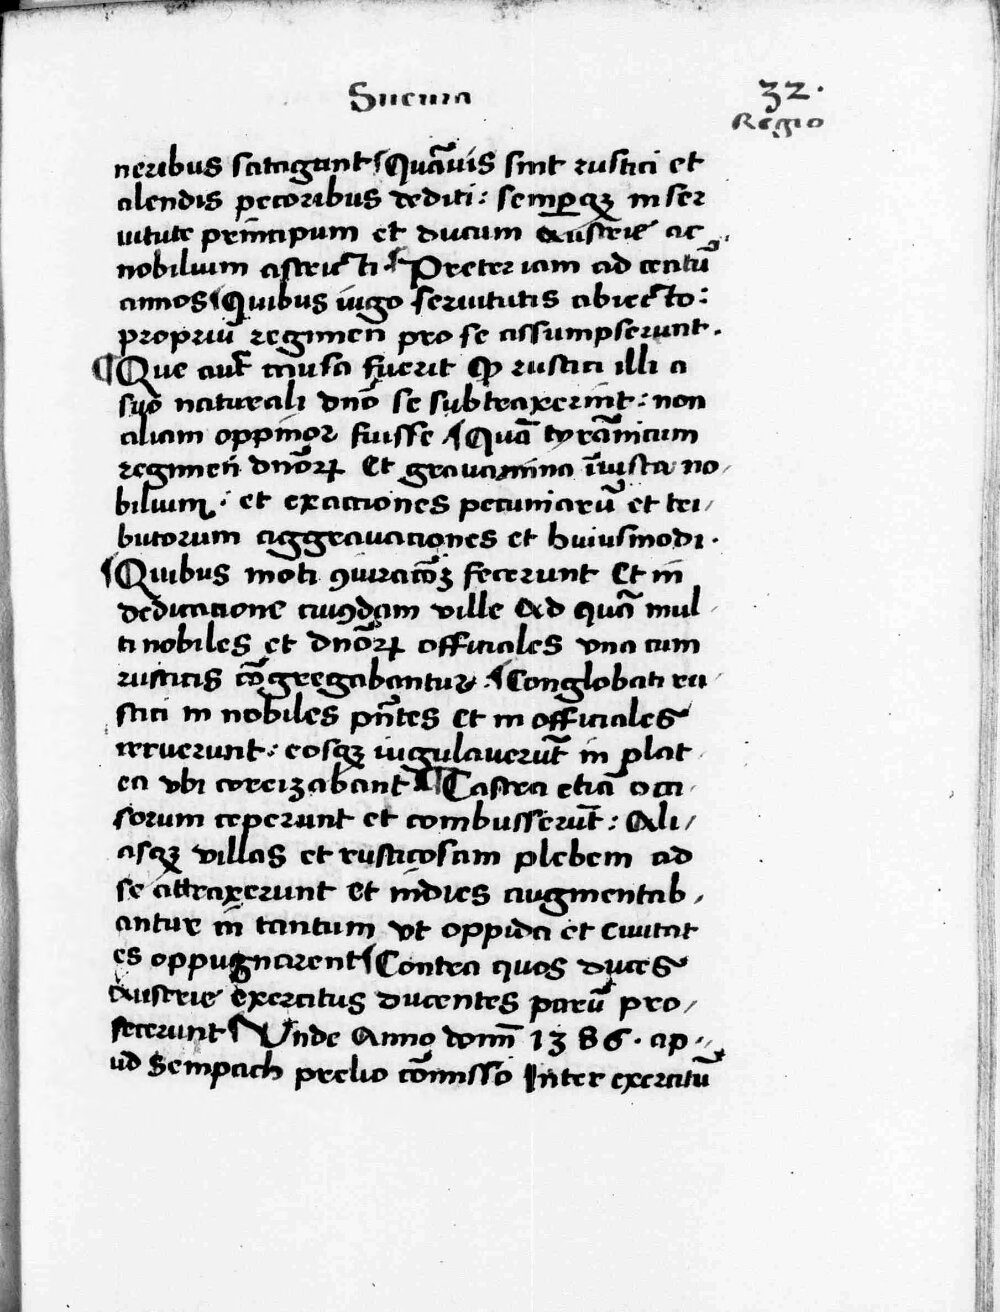 Sueuia
32.
Regio
neribus satagant ¶ Quāuis sint rustici et
alendis pecoribus dediti: semꝑqꝫ in ser
uitute prīncipum et ducum Austrie ac
nobilium astricti. ¶ Preter iam ad centū
annos ¶ Quibus iugo seruitutis abiecto:
propriū regimen pro se assumpserunt.
¶ Que aut̄ causa fuerit ꝙ rustici illi a
suo naturali dn̄o se subtraxerint: non
aliam oppinor fuisse ¶ Quā tyrānicum
regimen dn̄oꝝ Et grauamina īiusta no,
bilium. et exactiones pecuniarū et tri,
butorum aggrauaciones et huiusmodi.
¶ Quibus moti ꝯiuracōꝫ fecerunt Et in
dedicacione cuiꝰdam ville Ad quā mul,
ti nobiles et dn̄oꝝ officiales vna cum
rusticis cōgregabantur. ¶ Conglobati ru,
stici in nobiles pn̄tes Et in officiales
irruerunt: eosqꝫ iugulauerūt in plat,
ea vbi corizabant ¶ Castra etiā occi,
sorum ceperunt et combusserūt: Ali,
asqꝫ villas et rusticosam plebem ad
se attraxerunt et indies augmentab,
antur in tantum vt oppida et ciuitat
es oppugnarent ¶ Contra quos duces
Austrie exercitus ducentes parū pro,
fecerunt ¶ Vnde Anno domī 1386. ap,
ud Sempach prelio cōmisso Inter exercitū